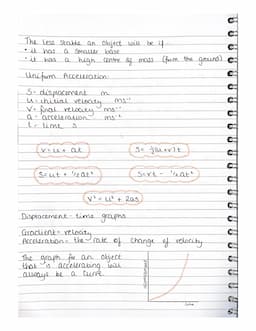 The less stable an object will be if
• it has a smaller base
• it has a high centre of mass (from the ground)
Uniform Acceleration
S- displacement m
u- initial velocity ms⁻¹
v- final velocity ms⁻¹
a- acceleration ms⁻²
t- time s
v = u + at
S = ½(u+v)t
S = ut + ½at²
S = vt - ½at²
v² = u² + 2as
Displacement - time graphs
Gradient = velocity
Acceleration = the rate of change of velocity
The graph for an object
that is accelerating will
always be a curve.
displacement
time